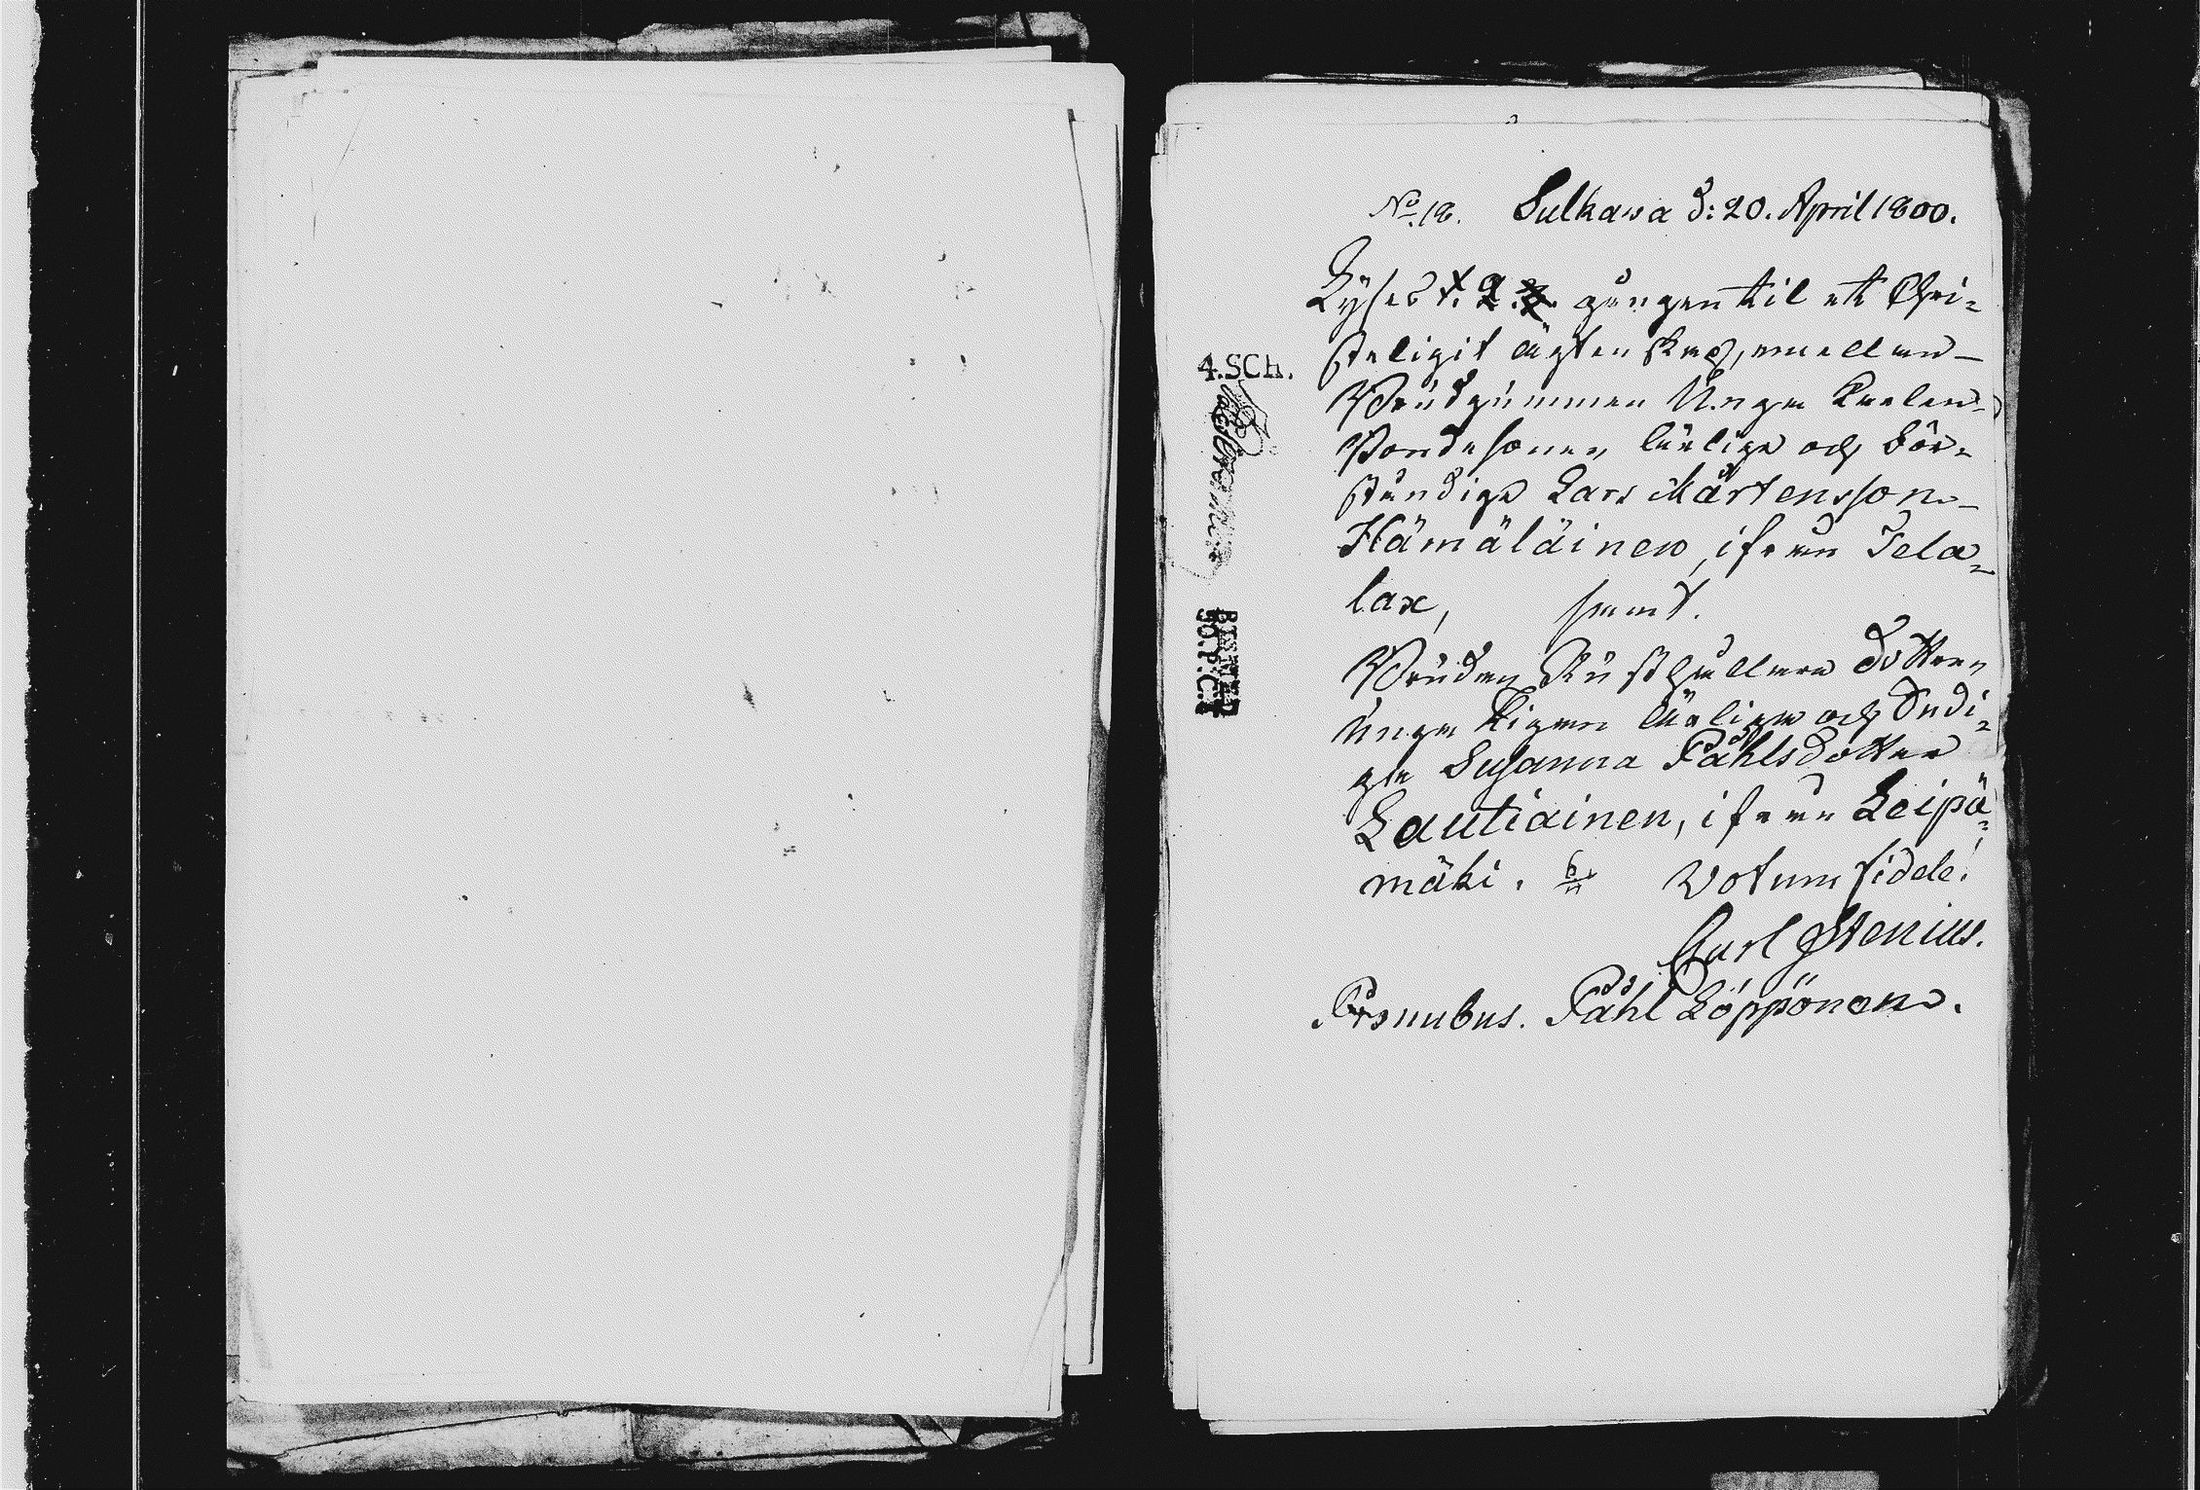 No 18. Sulkawa d: 20. April 1800.
Lyses 1. 2. 3. gången til ett Chri-
steligit ägtenskap, emellan
Brudgummen Unga Karlen
Bondesonen ärlige och bör-
ständige Lars Mårtensson
Hämäläinen, ifrån Tela-
lax, samt.
Bruden Rusthållare dottren
unga Pigan ärliga och Dudi-
ga Susanna Påhlsdotter
Lautiainen, ifrån Leipä-
mäki. Votum fidele!
Carl Stenius.
Pronubus. Påhl Löppönen.
4.SCH.